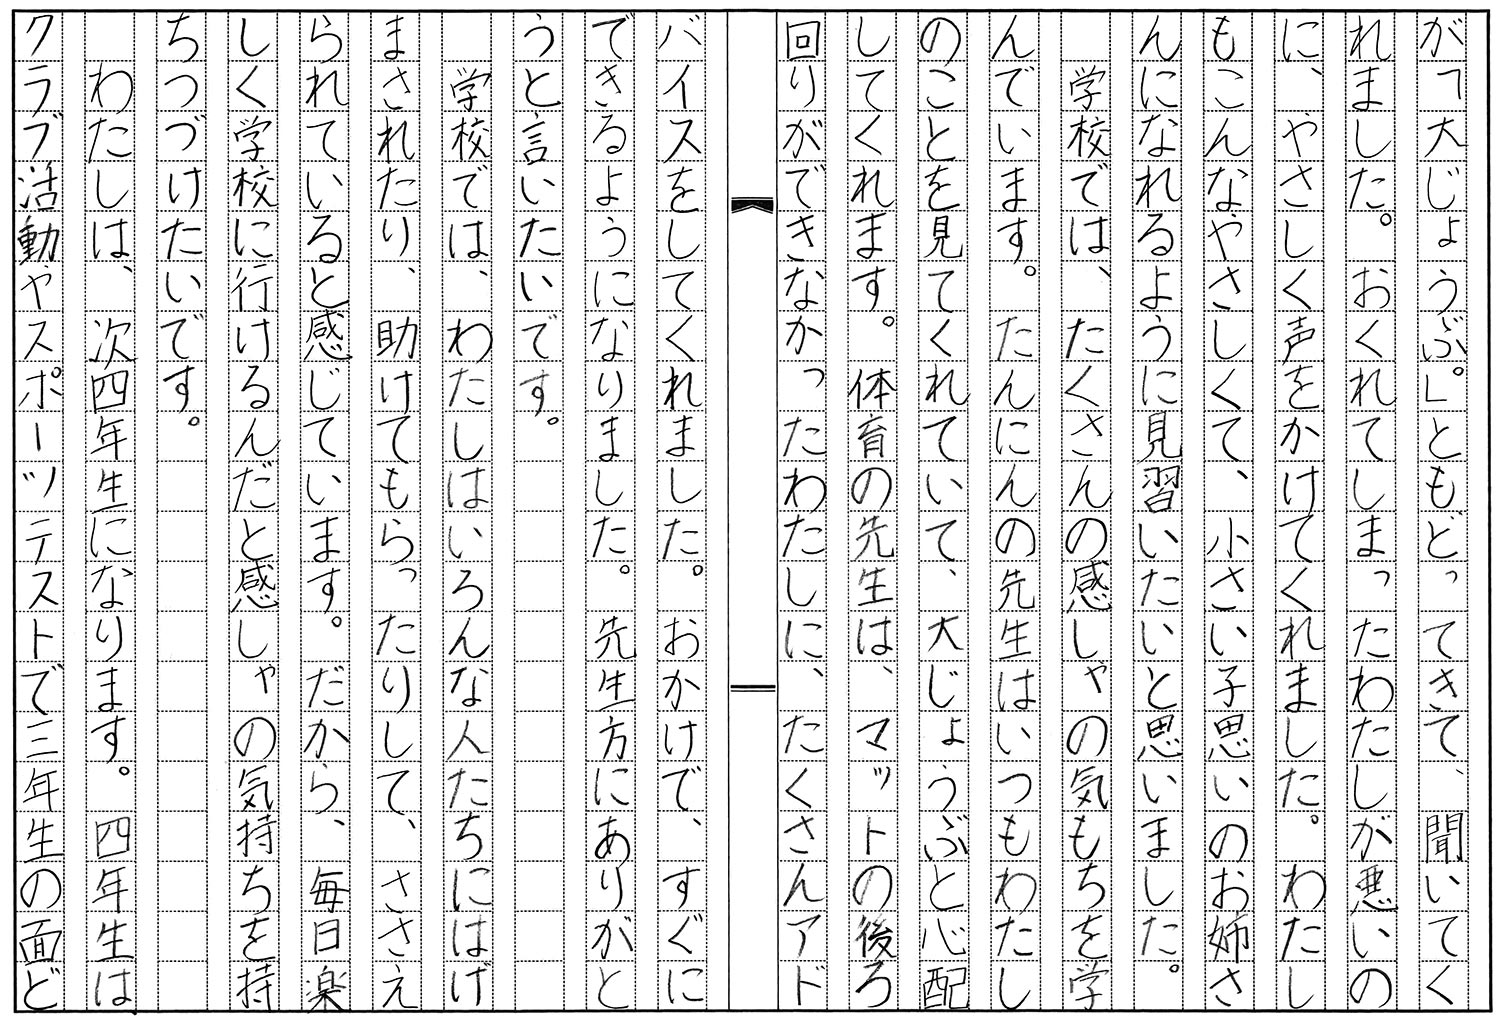 が「大じょうぶ。」ともどってきて、聞いてく
れました。おくれてしまったわたしが悪いの
に、やさしく声をかけてくれました。わたし
もこんなやさしくて、小さい子思いのお姉さ
んになれるように見習いたいと思いました。
　学校では、たくさんの感しゃの気もちを学
んでいます。たんにんの先生はいつもわたし
のことを見てくれていて、大じょうぶと心配
してくれます。体育の先生は、マットの後ろ
回りができなかったわたしに、たくさんアド
バイスをしてくれました。おかげで、すぐに
できるようになりました。先生方にありがと
うと言いたいです。
　学校では、わたしはいろんな人たちにはげ
まされたり、助けてもらったりして、ささえ
られていると感じています。だから、毎日楽
しく学校に行けるんだと感しゃの気持ちを持
ちつづけたいです。
　わたしは、次四年生になります。四年生は
クラブ活動やスポーツテストで三年生の面ど